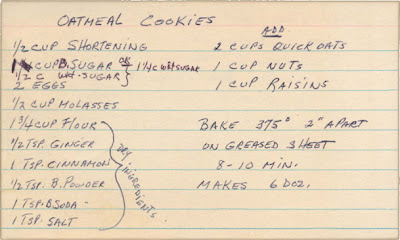 OATMEAL COOKIES
1/2 CUP SHORTENING
1 CUP B. SUGAR OR 1 1/4 C WHT SUGAR
1/2 C WHT. SUGAR
2 EGGS
1/2 CUP MOLASSES
1 3/4 CUP FLOUR
1/2 TSP. GINGER
1 TSP. CINNAMON
1/2 TSP. B. POWDER
1 TSP. B SODA
1 TSP. SALT
DRY INGREDIENTS
ADD
2 CUPS QUICK OATS
1 CUP NUTS
1 CUP RAISINS
BAKE 375° 2" APART
ON GREASED SHEET
8-10 MIN.
MAKES 6 DOZ.